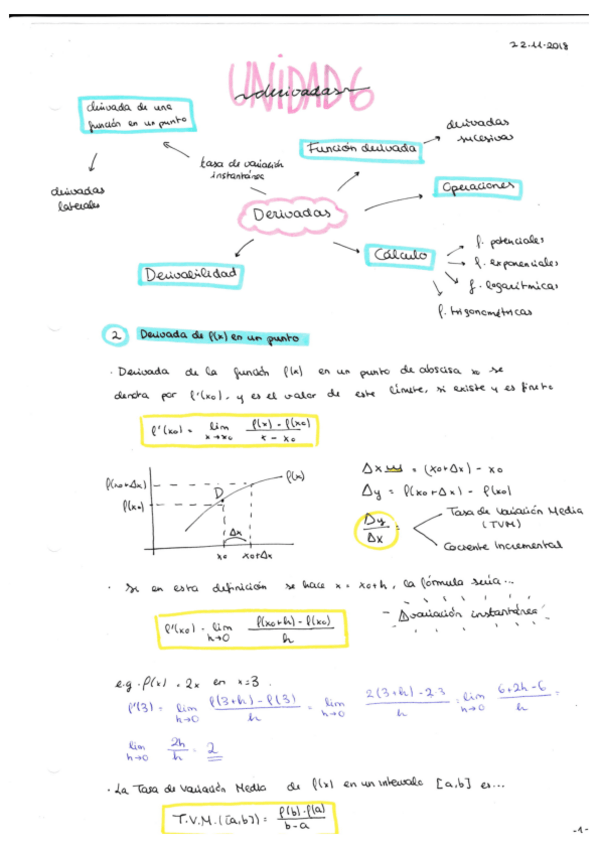 22-11-2018
UNIDAD 6
derivadas
derivada de una
función en un punto
derivadas
laterales
tasa de variación
instantánea
Función derivada
derivadas
sucesivas
Operaciones
Derivadas
Cálculo
f. potenciales
f. exponenciales
f. logarítmicas
f. trigonométricas
Derivabilidad
2 Derivada de f(x) en un punto
· Derivada de la función f(x) en un punto de abscisa x₀ se
denota por f'(x₀), y es el valor de este límite, si existe y es finito
f'(x₀) = lim x→x₀ f(x) - f(x₀) / x - x₀
f(x₀+Δx)
f(x₀)
D
f(x)
Δx
x₀ x₀+Δx
Δx = (x₀+Δx) - x₀
Δy = f(x₀+Δx) - f(x₀)
Δy / Δx =
Tasa de Variación Media
(TVM)
Cociente Incremental
· Si en esta definición se hace x = x₀+h, la fórmula sería...
f'(x₀) = lim h→0 f(x₀+h) - f(x₀) / h
Δ variación instantánea
e.g. f(x) = 2x en x=3.
f'(3) = lim h→0 f(3+h) - f(3) / h = lim h→0 2(3+h) - 2·3 / h = lim h→0 6+2h-6 / h =
lim h→0 2h / h = 2
· La Tasa de Variación Media de f(x) en un intervalo [a,b] es...
T.V.M.([a,b]) = f(b)-f(a) / b-a
-1-